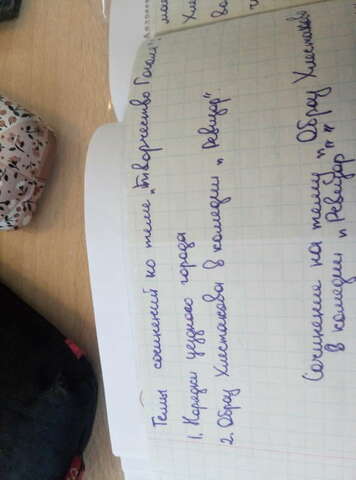 Темы сочинений по теме „Творчество Гоголя"
1. Порядки уездного города
2. Образ Хлестакова в комедии „Ревизор"
Сочинение на тему „Образ Хлестакова
в комедии „Ревизор""